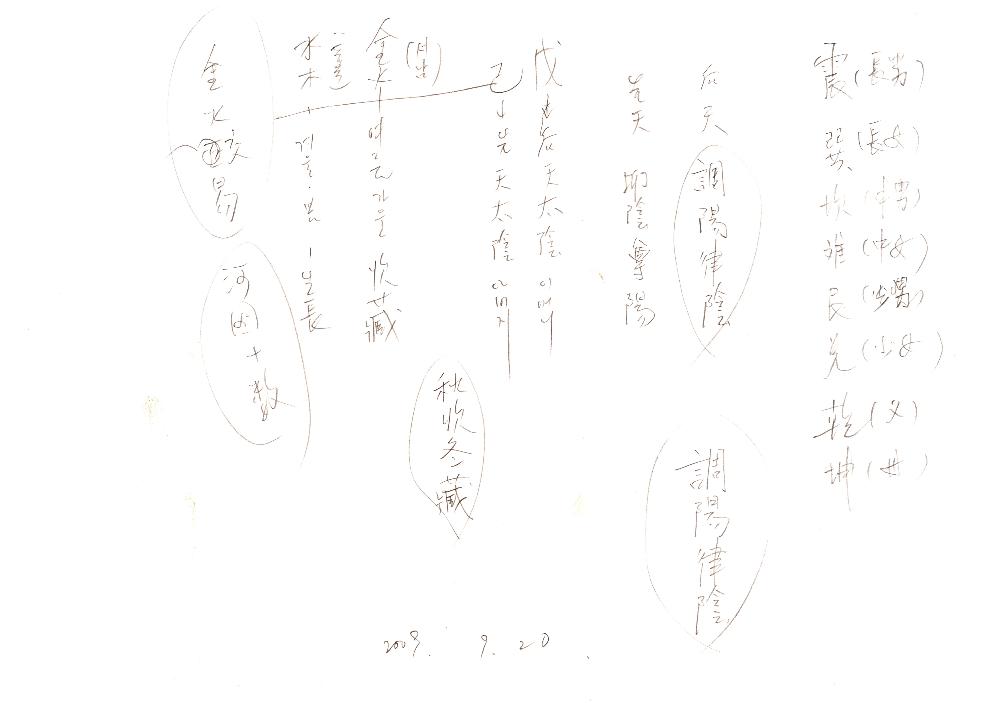 震(長男)
巽(長女)
坎(中男)
離(中女)
艮(少男)
兌(少女)
乾(父)
坤(母)
后天 調陽律陰
調陽律陰
先天 抑陰尊陽
戊 后天太陰 어머니
己 先天太陰 아버지
秋收冬藏
(서남)
金火 여름가을 收藏
水木 겨울·봄 生長
金火 易
河圖十數
2009. 9. 20.